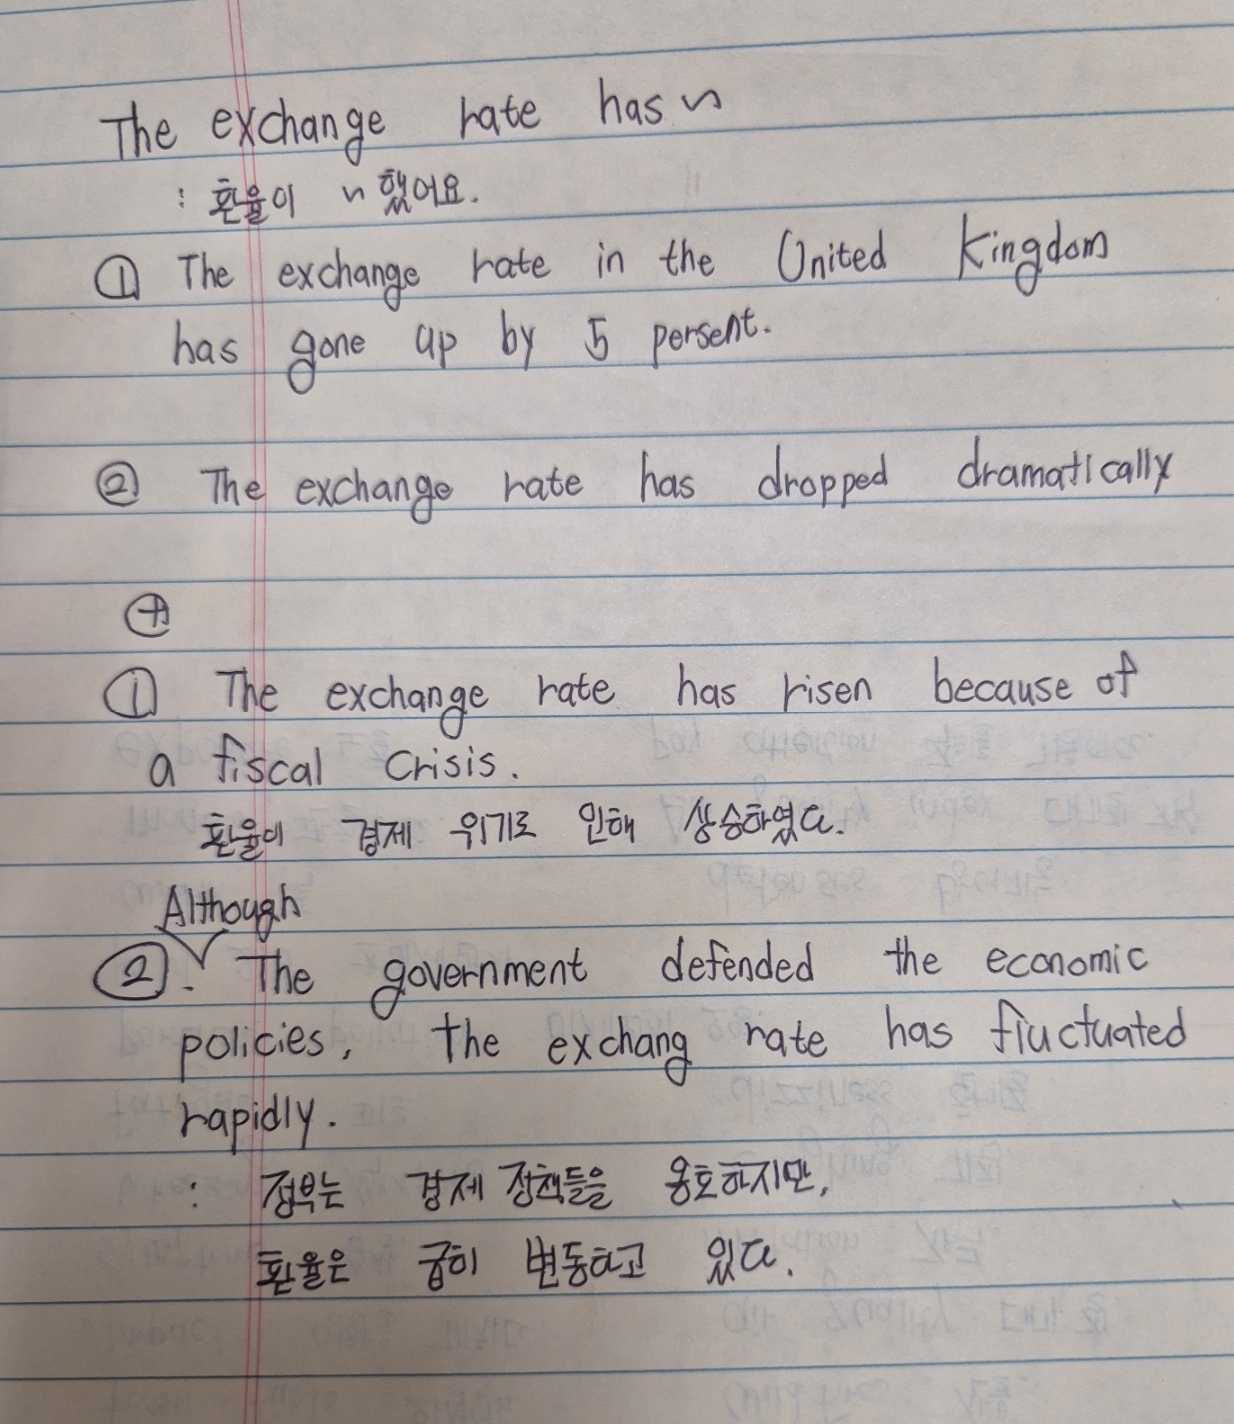 The exchange rate has ~
: 환율이 ~ 했어요.
① The exchange rate in the United Kingdom
has gone up by 5 persent.
② The exchange rate has dropped dramatically
⊕
① The exchange rate has risen because of
a fiscal crisis.
환율이 경제 위기로 인해 상승하였다.
Although
②. The government defended the economic
policies, the exchang rate has fluctuated
rapidly.
: 정부는 경제 정책들을 옹호하지만,
환율은 급히 변동하고 있다.